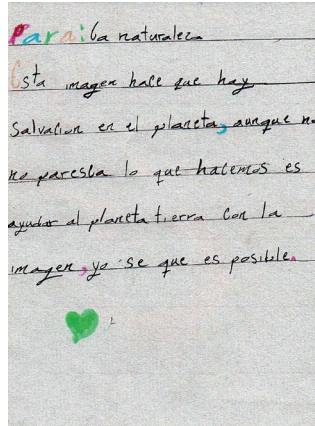 Para: la naturaleza
Esta imagen hace que hay
Salvacion en el planeta, aunque no
no paresca lo que hacemos es
ayudar al planeta tierra con la
imagen, yo se que es posible.